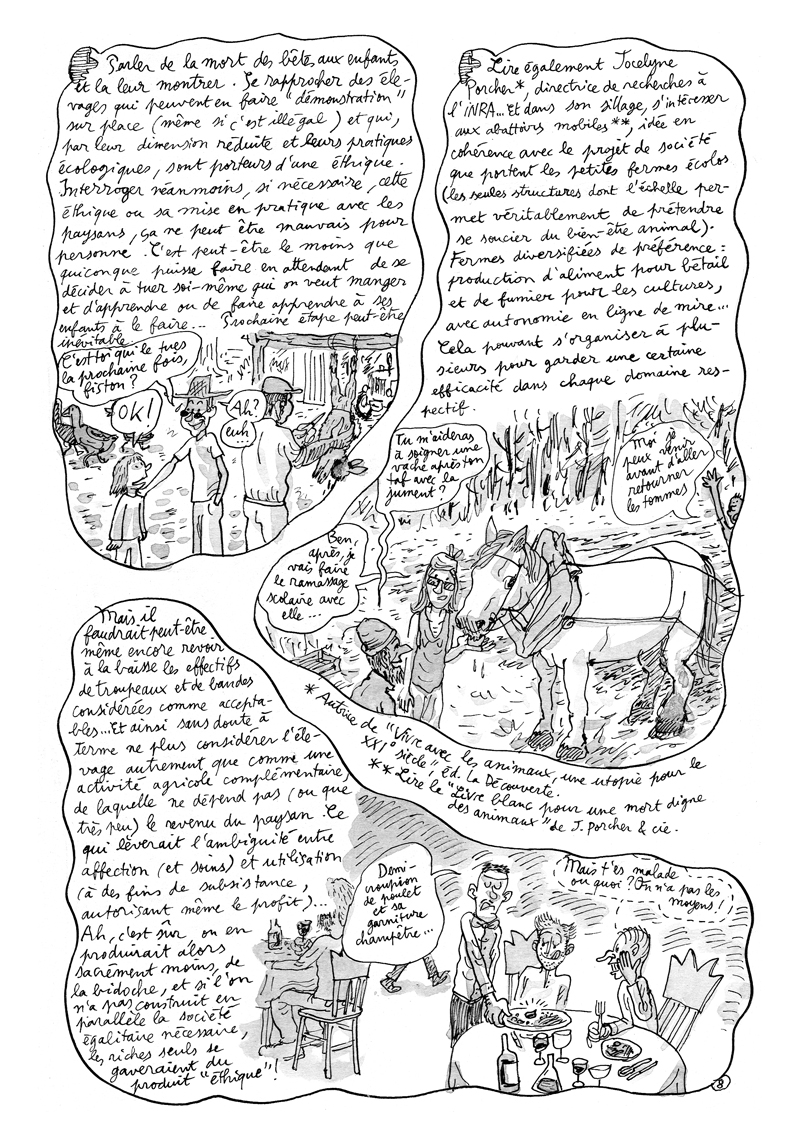 Parler de la mort des bêtes aux enfants
et la leur montrer. Se rapprocher des éle-
vages qui peuvent en faire "démonstration"
sur place (même si c'est illégal) et qui,
par leur dimension réduite et leurs pratiques
écologiques, sont porteurs d'une éthique.
Interroger néanmoins, si nécessaire, cette
éthique ou sa mise en pratique avec les
paysans, ça ne peut être mauvais pour
personne. C'est peut-être le moins que
quiconque puisse faire en attendant de se
décider à tuer soi-même qui on veut manger
et d'apprendre ou de faire apprendre à ses
enfants à le faire... Prochaine étape peut-être
inévitable
C'est toi qui le tues
la prochaine fois,
fiston?
OK!
Ah?
euh
Lire également Jocelyne
Porcher*, directrice de recherches à
l'INRA... Et dans son sillage, s'intéresser
aux abattoirs mobiles**, idée en
cohérence avec le projet de société
que portent les petites fermes écolos
(les seules structures dont l'échelle per-
met véritablement de prétendre
se soucier du bien-être animal).
Fermes diversifiées de préférence:
production d'aliment pour bétail
et de fumier pour les cultures,
avec autonomie en ligne de mire...
Cela pouvant s'organiser à plu-
sieurs pour garder une certaine
efficacité dans chaque domaine res-
pectif.
Tu m'aideras
à soigner une
vache après ton
taf avec la
jument?
Moi je
peux venir
avant d'aller
retourner
les tommes
Ben,
après, je
vais faire
le ramassage
scolaire avec
elle...
* Autrice de "Vivre avec les animaux, une utopie pour le
XXI° siècle", éd. La Découverte.
** Lire le "Livre blanc pour une mort digne
des animaux" de J. Porcher & cie.
Mais il
faudrait peut-être
même encore revoir
à la baisse les effectifs
de troupeaux et de bandes
considérées comme accepta-
bles... Et ainsi sans doute à
terme ne plus considérer l'éle-
vage autrement que comme une
activité agricole complémentaire,
de laquelle ne dépend pas (ou que
très peu) le revenu du paysan. Ce
qui lèverait l'ambiguité entre
affection (et soins) et utilisation
(à des fins de subsistance,
autorisant même le profit)...
Ah, c'est sûr on en
produirait alors
sacrément moins, de
la bidoche, et si l'on
n'a pas construit en
parallèle la société
égalitaire nécessaire,
les riches seuls se
gaveraient du
produit "éthique"!
Demi-
croupion
de poulet
et sa
garniture
champêtre...
Mais t'es malade
ou quoi? On n'a pas les
moyens!
8